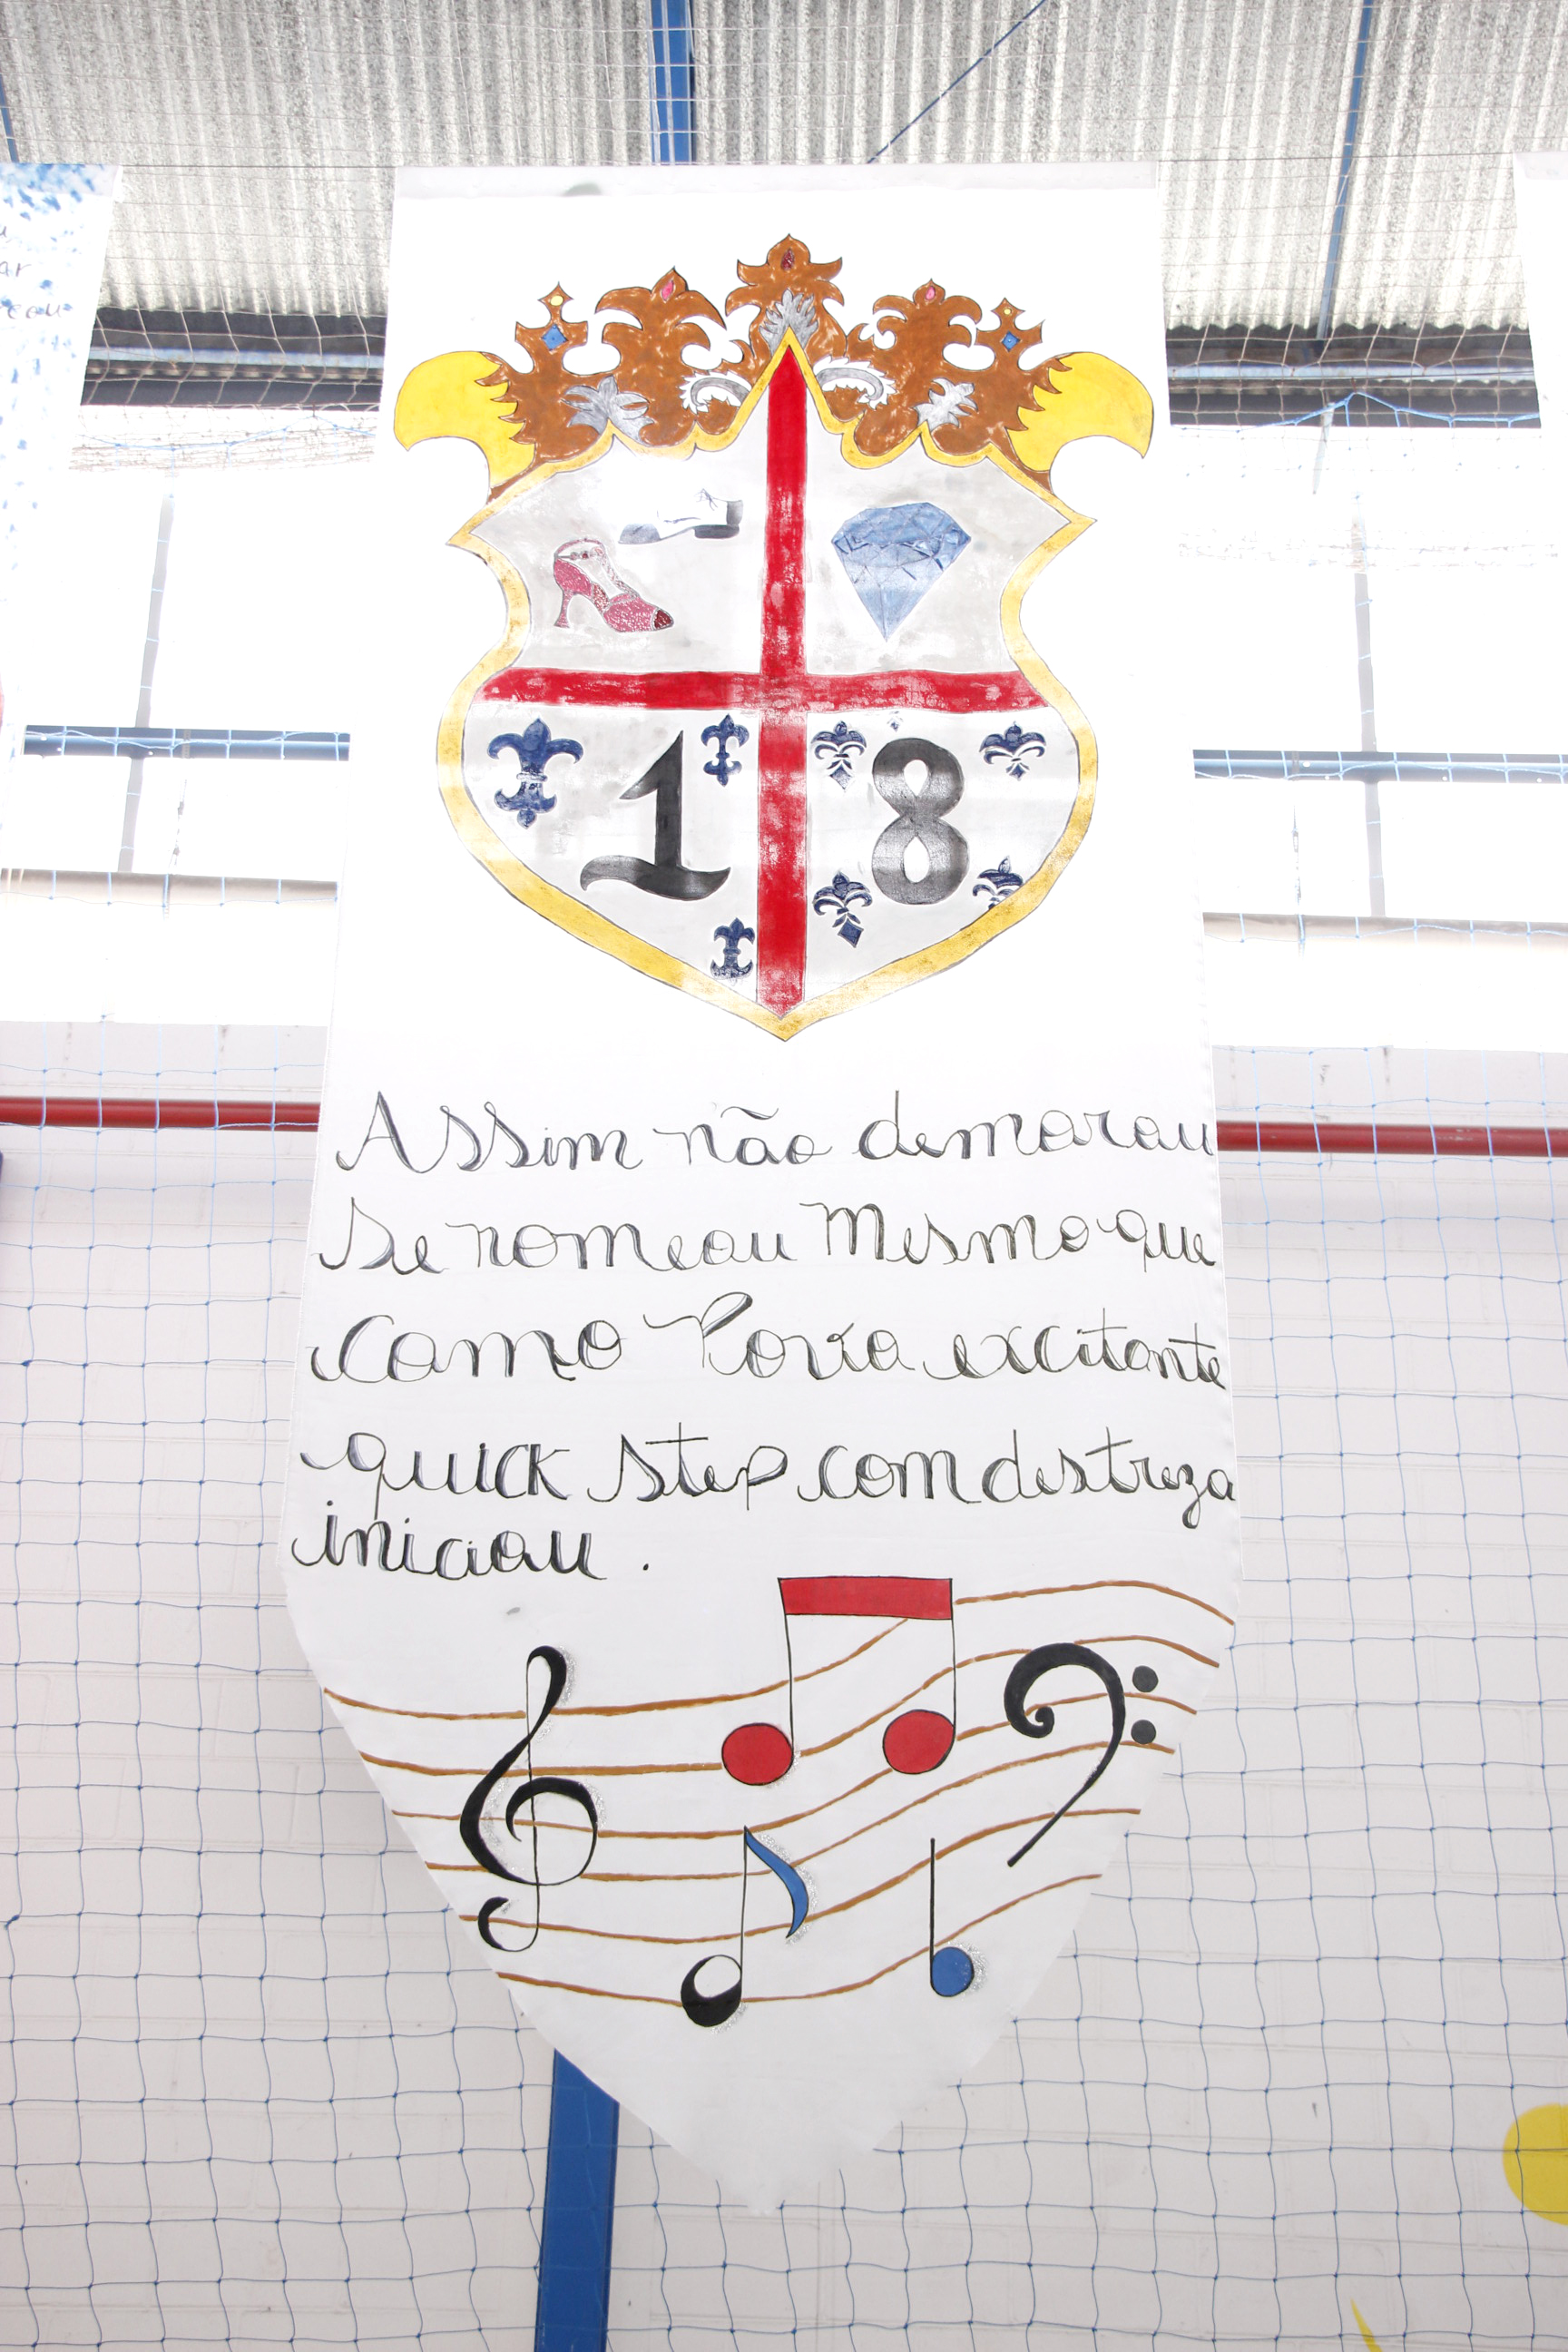 1 8
Assim não demorou
Se nomeou Mesmo que
Como excitante
quick Step com destreza
iniciou .